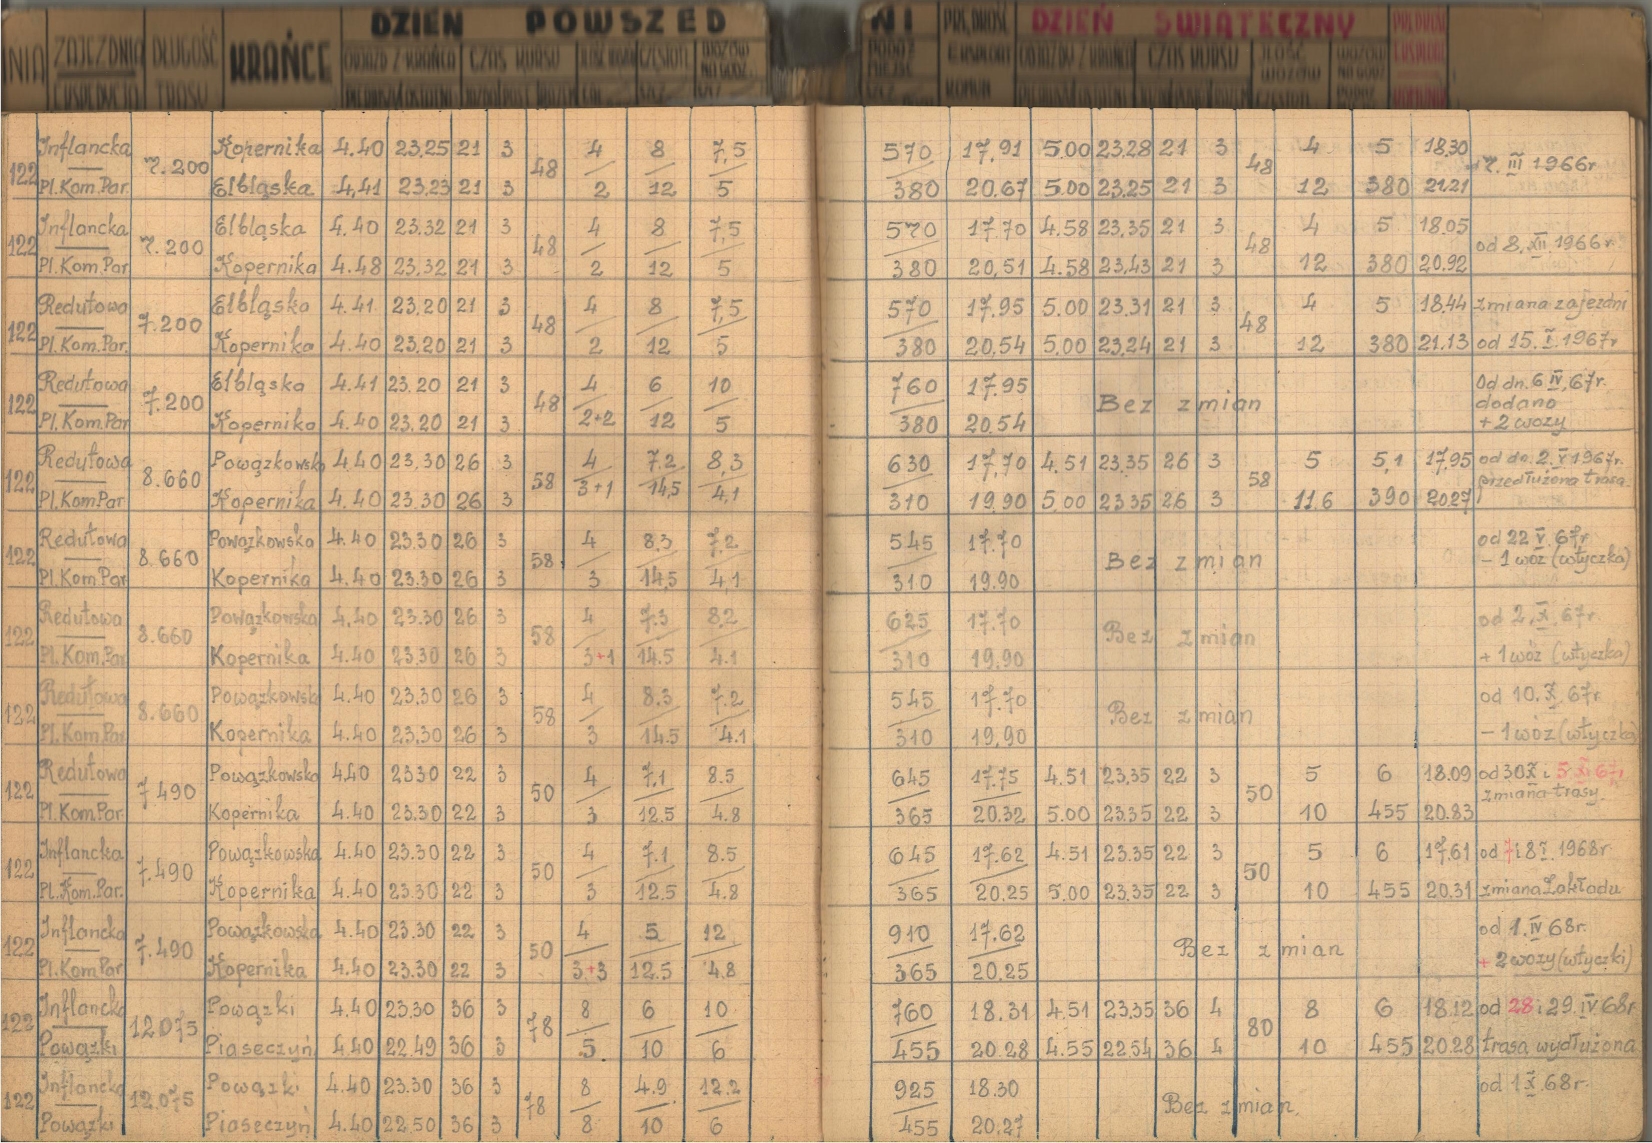 DZIEŃ POWSZEDNI PRĘDKOŚĆ DZIEŃ ŚWIĄTECZNY
ZAJEZDNIA DŁUGOŚĆ TRASU KRAŃCE ODJAZD Z KRAŃCA CZAS KURSU
Inflancka Kopernika 4.40 23.25 21 3 4 8 7,5 570 17.91 5.00 23.28 21 3 4 5 18.30
122 7.200 48 48 III 1966r
Pl.Kom.Par. Elbląska 4.41 23.23 21 3 2 12 5 380 20.67 5.00 23.25 21 3 12 380 21.21
Inflancka Elbląska 4.40 23.32 21 3 4 8 7,5 570 17.70 4.58 23.35 21 3 4 5 18.05
122 7.200 48 48 od 8.XII.1966r
Pl.Kom.Par. Kopernika 4.48 23.32 21 3 2 12 5 380 20,51 4.58 23.43 21 3 12 380 20.92
Redutowa Elbląska 4.41 23.20 21 3 4 8 7,5 570 17.95 5.00 23.31 21 3 4 5 18.44 zmiana zajezdni
122 7.200 48 48
Pl.Kom.Par. Kopernika 4.40 23.20 21 3 2 12 5 380 20,54 5.00 23.24 21 3 12 380 21.13 od 15.I.1967r
Redutowa Elbląska 4.41 23.20 21 3 4 6 10 760 17.95 Od dn. 6 IV.67r.
122 7.200 48 Bez zmian dodano
Pl.Kom.Par Kopernika 4.40 23.20 21 3 2+2 12 5 380 20.54 +2 wozy
Redutowa Powązkowsk 4.40 23.30 26 3 4 7.2 8,3 630 17,70 4.51 23.35 26 3 5 5,1 17.95 od dn. 2.V 1967r.
122 8.660 58 58 przedłużona trasa.
Pl.Kom Par Kopernika 4.40 23.30 26 3 3+1 14,5 4,1 310 19,90 5.00 23.35 26 3 11.6 390 20.27
Redutowa Powązkowska 4.40 23.30 26 3 4 8.3 7.2 545 17.70 od 22 V. 67r
122 8.660 58 Bez zmian - 1 wóz (wtyczka)
Pl.Kom Par Kopernika 4.40 23.30 26 3 3 14,5 4,1 310 19.90
Redutowa Powązkowska 4.40 23.30 26 3 4 7.3 8,2 625 17.70 od 2.X.67r.
122 8.660 58 Bez zmian
Pl.Kom.Par Kopernika 4.40 23.30 26 3 3+1 14.5 4.1 310 19.90 + 1 wóz (wtyczka)
Redutowa Powązkowsk 4.40 23.30 26 3 4 8.3 7.2 545 17.70 od 10.X.67r.
122 8.660 58 Bez zmian
Pl.Kom.Par Kopernika 4.40 23.30 26 3 3 14.5 4.1 310 19,90 - 1 wóz (wtyczka)
Redutowa Powązkowska 4.40 23.30 22 3 4 7,1 8.5 645 17.75 4.51 23.35 22 3 5 6 18.09 od 30 X i 5 XI 67r
122 7.490 50 50 zmiana trasy.
Pl.Kom.Par. Kopernika 4.40 23.30 22 3 3 12.5 4.8 365 20.32 5.00 23.35 22 3 10 455 20.83
Inflancka Powązkowska 4.40 23.30 22 3 4 7.1 8.5 645 17.62 4.51 23.35 22 3 5 6 17.61 od 7 i 8 I. 1968r.
122 7.490 50 50
Pl.Kom.Par. Kopernika 4.40 23.30 22 3 3 12.5 4.8 365 20.25 5.00 23.35 22 3 10 455 20.31 zmiana Zakładu
Inflancka Powązkowska 4.40 23.30 22 3 4 5 12 910 17.62 od 1.IV 68r.
122 7.490 50 Bez zmian
Pl.Kom.Par Kopernika 4.40 23.30 22 3 3+3 12.5 4.8 365 20.25 + 2 wozy (wtyczki)
Inflancka Powązki 4.40 23.30 36 3 8 6 10 760 18.31 4.51 23.35 36 4 8 6 18.12 od 28 i 29.IV 68r
122 12.075 78 80
Powązki Piaseczyń 4.40 22.49 36 3 5 10 6 455 20.28 4.55 22.54 36 4 10 455 20.28 trasa wydłużona
Inflancka Powązki 4.40 23.30 36 3 8 4.9 12.2 925 18.30 od 1 X.68r.
122 12.075 78 Bez zmian.
Powązki Piaseczyń 4.40 22.50 36 3 8 10 6 455 20.27